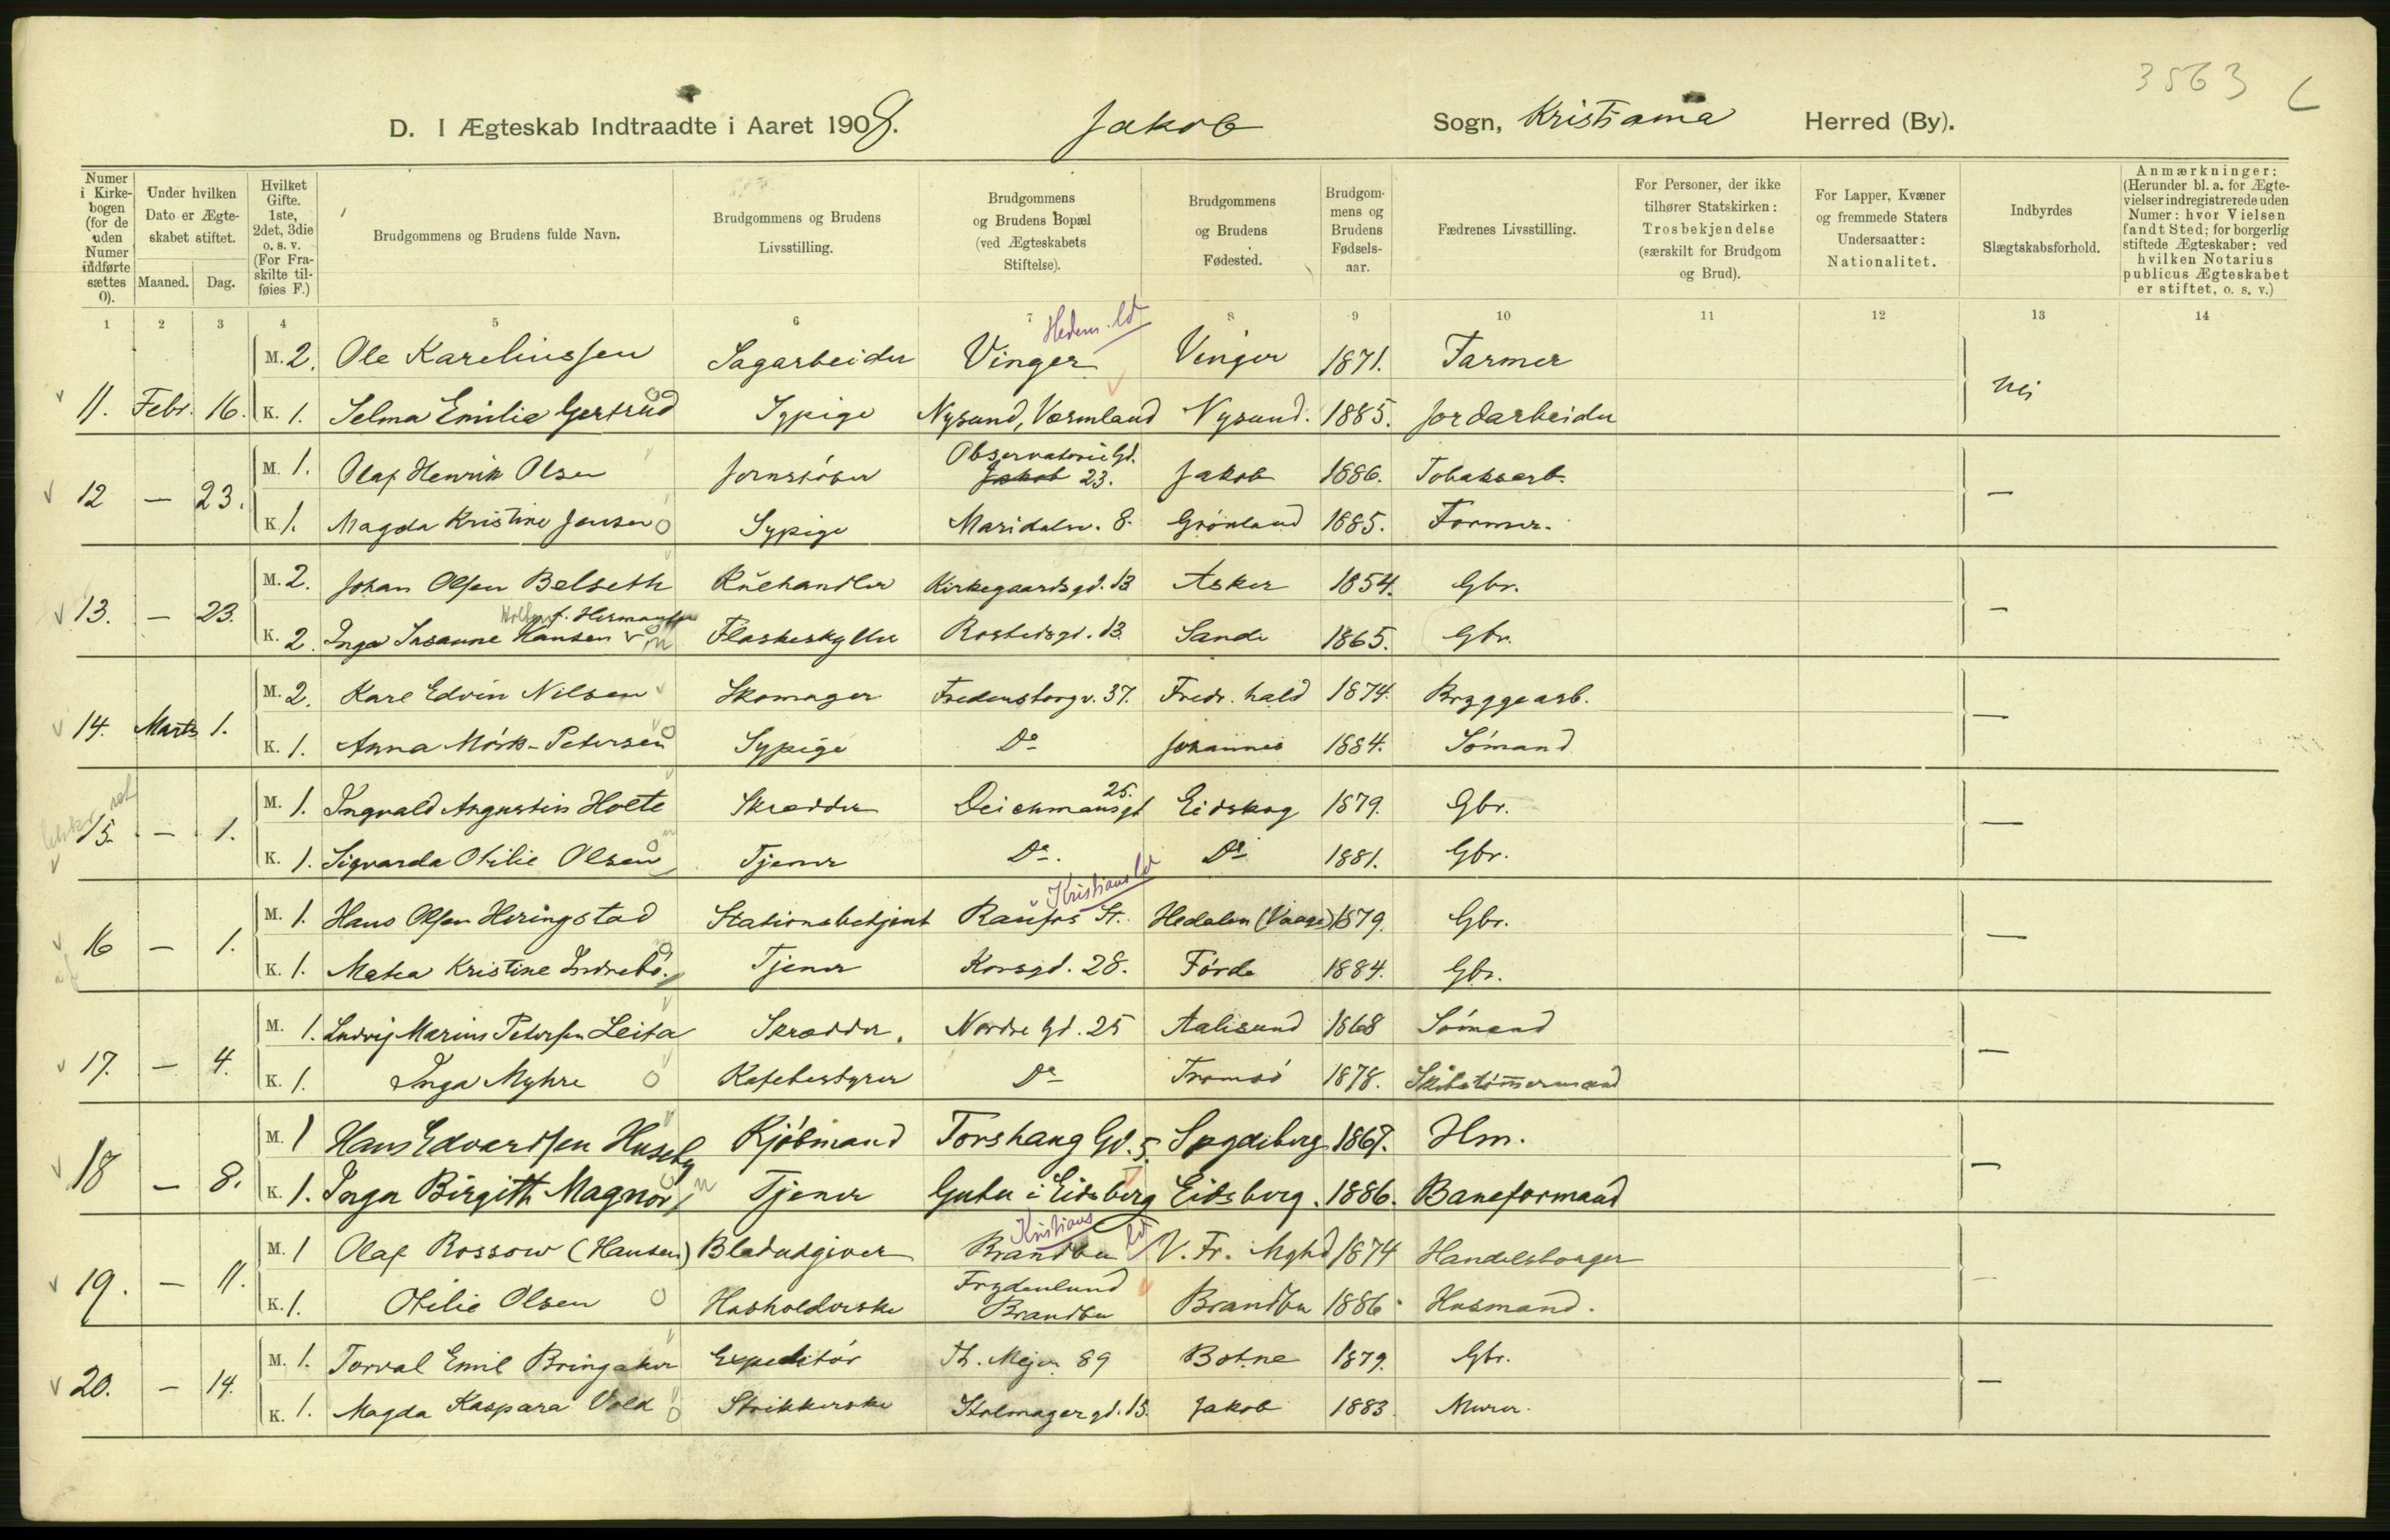 3563
D. I Ægteskab Indtraadte i Aaret 1909. Jakob Sogn, Kristiania Herred (By).
Numer i Kirkebogen (for de uden Numer indførte sættes 0).
Under hvilken Dato er Ægteskabet stiftet.
Maaned. Dag.
Hvilket Gifte. 1ste, 2det, 3die o. s. v. (For Fraskilte tilføies F.)
Brudgommens og Brudens fulde Navn.
Brudgommens og Brudens Livsstilling.
Brudgommens og Brudens Bopæl (ved Ægteskabets Stiftelse).
Brudgommens og Brudens Fødested.
Brudgommens og Brudens Fødselsaar.
Fædrenes Livsstilling.
For Personer, der ikke tilhører Statskirken: Trosbekjendelse (særskilt for Brudgom og Brud).
For Lapper, Kvæner og fremmede Staters Undersaatter: Nationalitet.
Indbyrdes Slægtskabsforhold.
Anmærkninger: (Herunder bl. a. for Ægtevielser indregistrerede uden Numer: hvor Vielsen fandt Sted; for borgerlig stiftede Ægteskaber: ved hvilken Notarius publicus Ægteskabet er stiftet, o. s. v.)
1 2 3 4 5 6 7 8 9 10 11 12 13 14
Hedem. ld
M. 2. Ole Kareliussen Sagarbeider Vinger Vinger 1871. Farmer
11. Febr. 16. K. 1. Selma Emilia Gertrud Sypige Nysund, Vermland Nysund. 1885. Jordarbeider Nei
M. 1. Olaf Henrik Olsen Jernstøber Observatorie Gd. Jakob 23. Jakob 1886. Tobaksarb.
12 — 23. K. 1. Magda Kristine Jensen Sypige Maridalsv. 8. Grønland 1885. Former. —
M. 2. Johan Olsen Belseth Kulhandler Kirkegaardsgd. 13 Asker 1854. Gbr.
13. — 23. K. 2. Inga Susanne Hansen f. Hermansen Flaskeskyller Rostedsgd. 13 Sande 1865. Gbr. —
M. 2. Karl Edvin Nilsen Skomager Fredensborgv. 37. Fredr. hald 1874. Bryggearb.
14. Marts 1. K. 1. Anna Mørk-Petersen Sypige Do Johannes 1884. Sømand —
M. 1. Ingvald Augustin Holte Skrædder Deichmansgt 25. Eidskog 1879. Gbr.
15. — 1. K. 1. Sigvarda Otilie Olsen Tjener Do. Do 1881. Gbr. —
Kristians ld
M. 1. Hans Olsen Heringstad Stationsbetjent Raufos St. Hedalen (Vaage) 1879. Gbr.
16 — 1. K. 1. Matea Kristine Indrebø. Tjener Korsgd. 28. Førde 1884. Gbr. —
M. 1. Ludvig Marius Petersen Leita Skrædder. Nordre Gd. 25 Aalesund 1868 Sømand
17. — 4. K. 1. Inga Myhre Kafebestyrer Do Tromsø 1878. Skibstømmermand —
M. 1 Hans Edvardsen Huseby Kjøbmand Torshaug Gd. 5. Spydeberg 1867. Hm.
18 — 8. K. 1. Inga Birgith Magnor Tjener Gutu i Eidsberg Eidsberg. 1886. Baneformand —
Kristians ld
M. 1 Olaf Rossow (Hansen) Bladudgiver Brandbu V. Fr. Mghd 1874 Handelsborger
19. — 11. K. 1. Otilie Olsen Husholderske Frydenlund Brandbu Brandbu 1886. Husmand. —
M. 1. Torval Emil Bringaker Expeditør Th. Mejer. 89 Botne 1879. Gbr.
20. — 14. K. 1. Magda Kaspara Vold Strikkerske Stolmagergd. 15. Jakob 1883. Murer. —